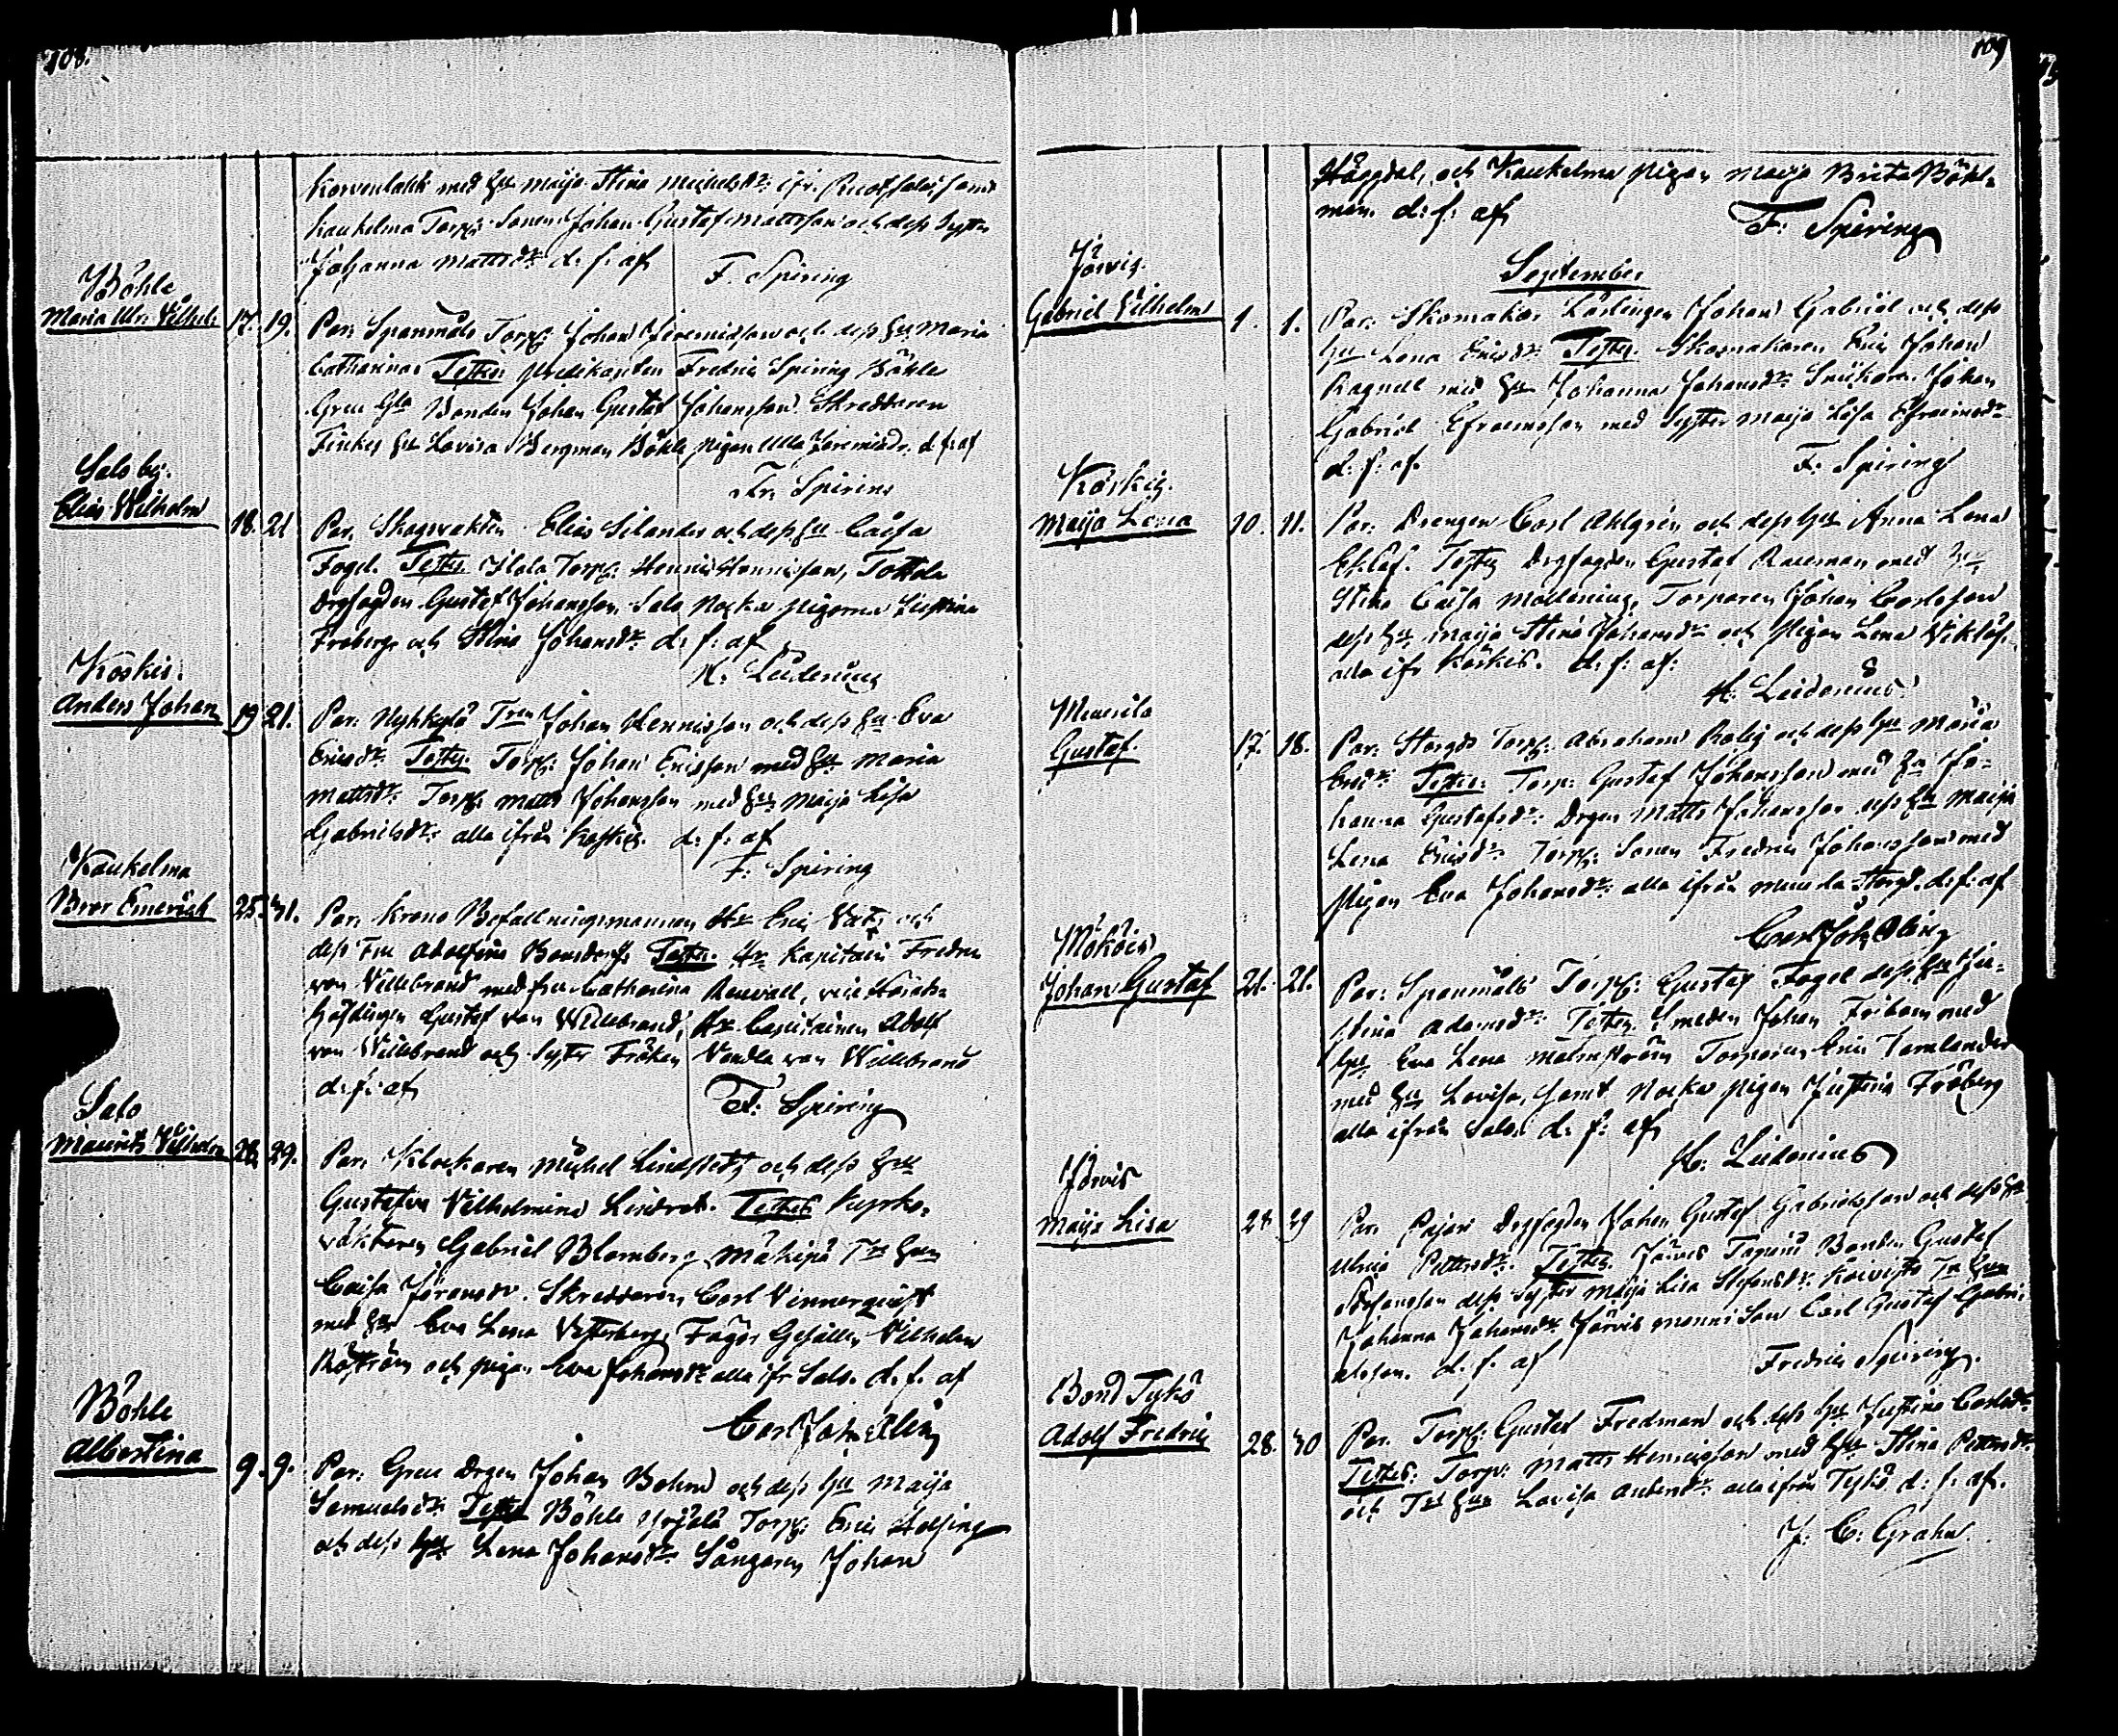 108.
Korvenlahti med Hu Maija Stina Michelsdr: ifr.
Kaukelma Torp: Sonen Johan Gustaf Mattsson och dess Syster
Johanna Mattsdr: d: f: af
F. Spiring
Böhle
Maria Ulr: Vilhelm: 17. 19. Par: Spanmåls Torp: Johan Jeremiasson och dess Hu Maria
Catharina Testes Predikanten Fredric Spiring Böhle
Gren Gla Bonden Johan Gustaf Johansson Skreddaren
Hu Lovisa Bergman Böhle pigan Ulla Jeremiædr. d: f: af
Fr. Spiring
Salo by.
Elias Wilhelm 18. 21 Par. Skogvakten Elias Silander och dess Hu Caisa
Fogel. Testes Torp: Henric Henricsson, Tottola
Drgfogden Gustaf Johansson Salo Nocka pigorna Justina
Froberg och Stina Johansdr: d: f: af
H: Lidenius
Koskis.
Anders Johan 19 21. Par: Nyhkylä Tren Johan Hennisson och dess Hu Eva
Ericsdr: Testes. Torp: Johan Ericsson med Hu Maria
Mattsdr: Torp: Matts Johansson med Hu Maija Lisa
Gabrielsdr: alla ifrån Koskis. d: f: af
F: Spiring
Kaukelma
Bror Emerick 25. 31. Par. Krono Befallningsmannen Hr Eric och
dess Fru Adolfina Bonsdorff Testes. Hr Kapitain Fredric
von Villebrand med fru Catharina Renvall, vice Härads-
höfdingen Gustaf von Willebrand, Hr Capitainen Adolf
von Willebrand och Syster Fröken Vendla von Willebrand
d: f: af
F: Spiring
Salo
Maurits Vilhelm 28. 29. Par: Klockaren Michel Lindstedt och dess Hu
Gustafva Vilhelmina Lindrot. Testes Kyrko-
väktaren Gabriel Blomberg, Mäkipä Trs Hu
Caisa Jöransdr. Skreddaren Carl Vinnerquist
med Hu Eva Lena Vesterberg, Gesällen Vilhelm
Boström och pigan Eva Johansdr alla ifr Salo. d. f. af
Carl Joh: Ölin
Böhle
Albertina 9. 9. Par: Gren Drgen Johan Bohm och dess Hu Maija
Samuelsdr: Testes Böhle Torp: Eric Helsing
och dess Hu Lena Johansdr: Sångaren Johan
109
Häggdal, och Kaukelma pigan Maija Brita Böhl-
man. d: f: af
F: Spiring
September
Järvis.
Gabriel Vilhelm 1. 1. Par: Skomakar Lärlingen Johan Gabriel och dess
Hu Lena Ericsdr: Testes. Skomakaren Eric Johan
Ragnell med Hu Johanna Johansdr: Snickaren Johan
Gabriel Efraimsson med Syster Maija Lisa Efraimsdr:
d: f: af.
F: Spiring
Koskis.
Maija Lena 10. 11. Par: Drengen Carl Ahlgrén och dess Hu Anna Lena
Eklöf. Testes Drgfogden Gustaf med Hu
Stina Caisa Torparen Johan Carlsson
dess Hu Maija Stina Johansdr: och Pigan Lena Viklöf
alla ifr Koskis. d: f: af:
H: Lidenius
Muurila
Gustaf. 17. 18. Par: Storgds Torp: Abraham Rolig och dess Hu Maria
Ericsdr: Testes: Torp: Gustaf Johansson med Hu Jo-
hanna Gustafsdr: Drgen Matts Johansson dess Hu Maija
Lena Ericsdr: Torp: Sonen Fredric Johansson med
Pigan Eva Johansdr: alla ifrån Muurila Storgd. d: f: af
Carl Joh. Ölin
Mökois
Johan Gustaf 21. 21. Par: Spanmåls Torp: Gustaf Fogel dess Hu Ju-
stina Adamsdr: Testes. Smeden Johan Fribom med
Hu Eva Lena Malmström Torparen Eric Tamlander
med Hu Lovisa, samt Nocka pigan Justina Fröberg
alla ifrån Salo. d: f: af
H. Lidenius
Järvis
Maija Lisa 28. 29 Par. Pajari Drgfogden Johan Gustaf Gabrielsson och dess Hu
Ulrica Pettersdr: Testes. Järvis Bonden Gustaf
Stefansson dess Syster Maija Lisa Stefansdr: Koivisto Trs Hu
Johanna Johansdr: Järvis Carl Gustaf Gabri-
elsson. d. f. af
Fredric Spiring.
Bond Tykö
Adolf Fredric 28. 30 Par. Torp: Gustaf Fredman och dess Hu Justina Carlsdr:
Testes: Torp: Matts Henricsson med Hu Stina Pettersdr:
och Trs Hu Lovisa Andersdr: alla ifrån Tykö d: f: af.
J: C: Grahn